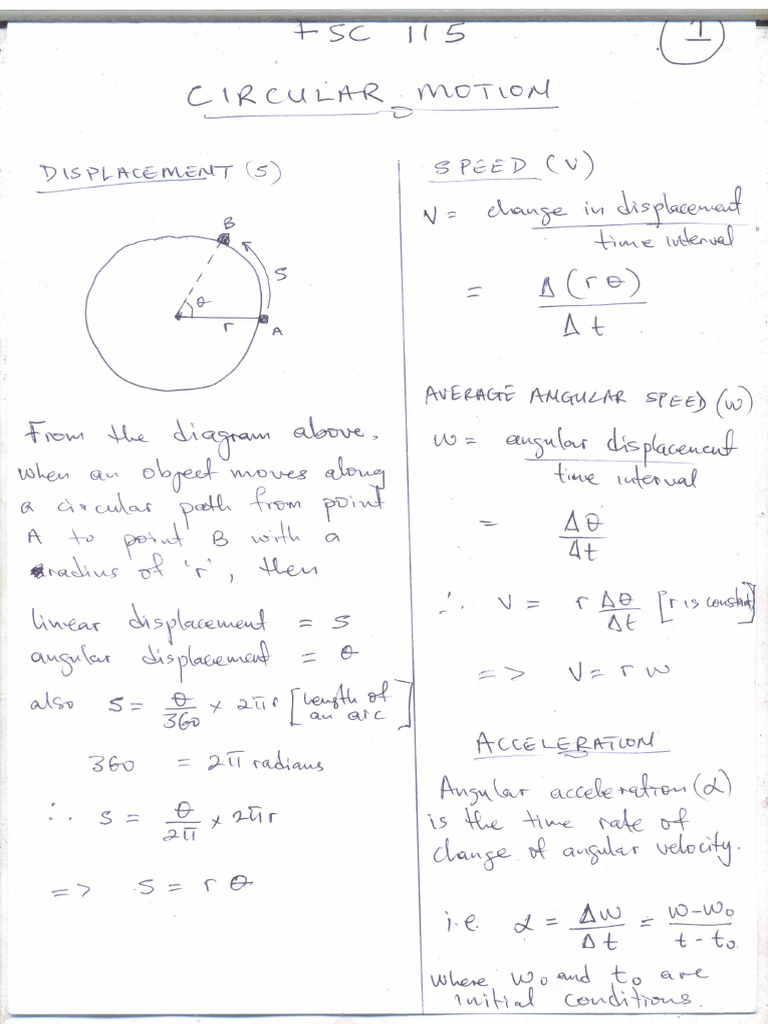 FSC 115
1
CIRCULAR MOTION
DISPLACEMENT (S)
B
S
θ
r
A
From the diagram above,
when an object moves along
a circular path from point
A to point B with a
radius of 'r', then
linear displacement = S
angular displacement = θ
also S = θ/360 × 2πr [length of an arc]
360 = 2π radians
∴ S = θ/2π × 2πr
=> S = r θ
SPEED (V)
V = change in displacement / time interval
= Δ(rθ) / Δt
AVERAGE ANGULAR SPEED (W)
W = angular displacement / time interval
= Δθ / Δt
∴ V = r Δθ/Δt [r is constant]
=> V = r w
ACCELERATION
Angular acceleration (α)
is the time rate of
change of angular velocity.
i.e. α = Δw/Δt = w-w₀/t-t₀
where w₀ and t₀ are
initial conditions.